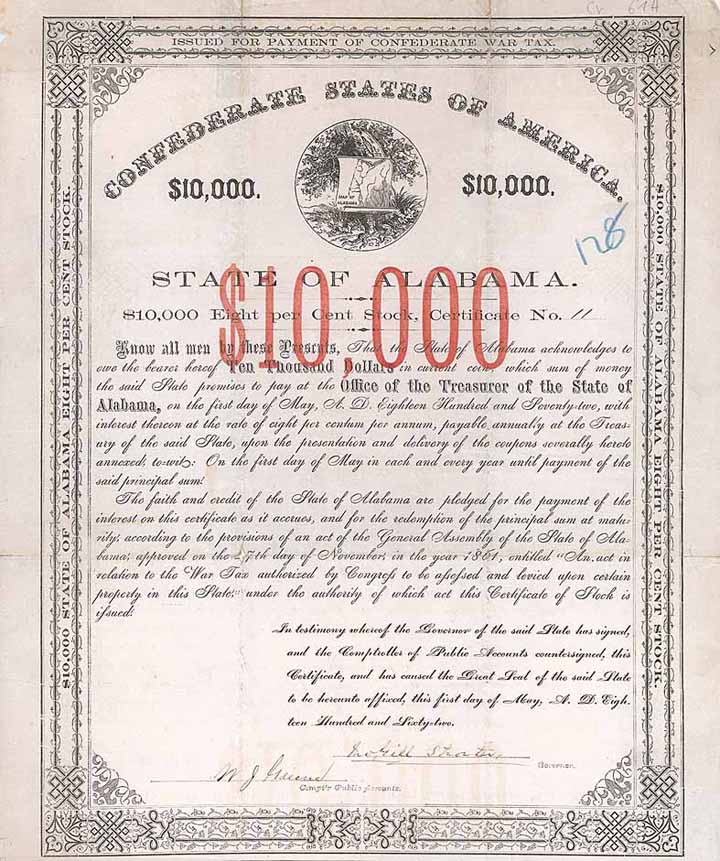 Cr 614
ISSUED FOR PAYMENT OF CONFEDERATE WAR TAX.
CONFEDERATE STATES OF AMERICA.
$10,000.
$10,000.
MAP OF
ALABAMA
128
STATE OF ALABAMA.
$10,000
$10,000 Eight per Cent Stock, Certificate No. 11
Know all men by these Presents, That the State of Alabama acknowledges to
owe the bearer hereof Ten Thousand Dollars in current coin, which sum of money
the said State promises to pay at the Office of the Treasurer of the State of
Alabama, on the first day of May, A. D. Eighteen Hundred and Seventy-two, with
interest thereon at the rate of eight per centum per annum, payable annually at the Treas-
ury of the said State, upon the presentation and delivery of the coupons severally hereto
annexed, to-wit: On the first day of May in each and every year until payment of the
said principal sum.
The faith and credit of the State of Alabama are pledged for the payment of the
interest on this certificate as it accrues, and for the redemption of the principal sum at matu-
rity, according to the provisions of an act of the General Assembly of the State of Ala-
bama, approved on the 27th day of November, in the year 1861, entitled "An act in
relation to the War Tax authorized by Congress to be assessed and levied upon certain
property in this State," under the authority of which act this Certificate of Stock is
issued.
In testimony whereof the Governor of the said State has signed,
and the Comptroller of Public Accounts countersigned, this
Certificate, and has caused the Great Seal of the said State
to be hereunto affixed, this first day of May, A. D. Eigh-
teen Hundred and Sixty-two.
Jno Gill Shorter
Governor.
W J Greene
Compt'r Public Accounts.
$10.000 STATE OF ALABAMA EIGHT PER CENT STOCK.
$10.000 STATE OF ALABAMA EIGHT PER CENT STOCK.